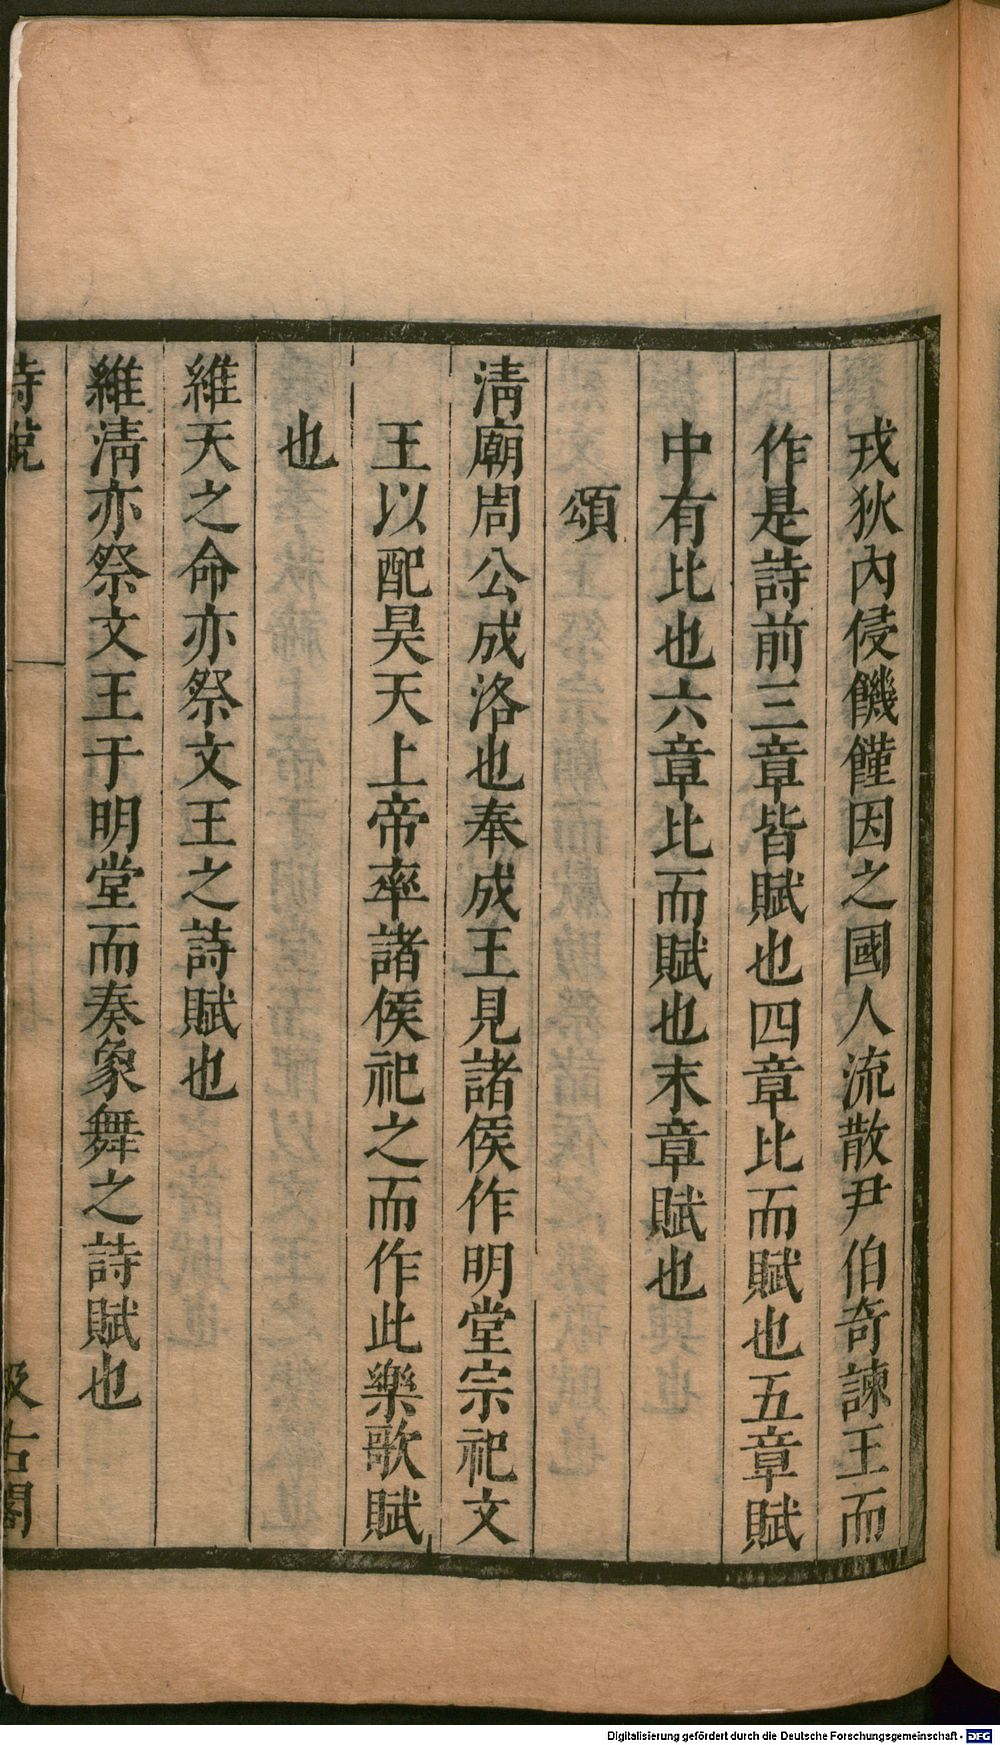 戎狄內侵饑饉因之國人流散尹伯奇諫王而
作是詩前三章皆賦也四章比而賦也五章賦
中有比也六章比而賦也末章賦也
頌
淸廟周公成洛也奉成王見諸侯作明堂宗祀文
王以配昊天上帝率諸侯祀之而作此樂歌賦
也
維天之命亦祭文王之詩賦也
維淸亦祭文王于明堂而奏象舞之詩賦也
詩說
汲古閣
Digitalisierung gefördert durch die Deutsche Forschungsgemeinschaft - DFG